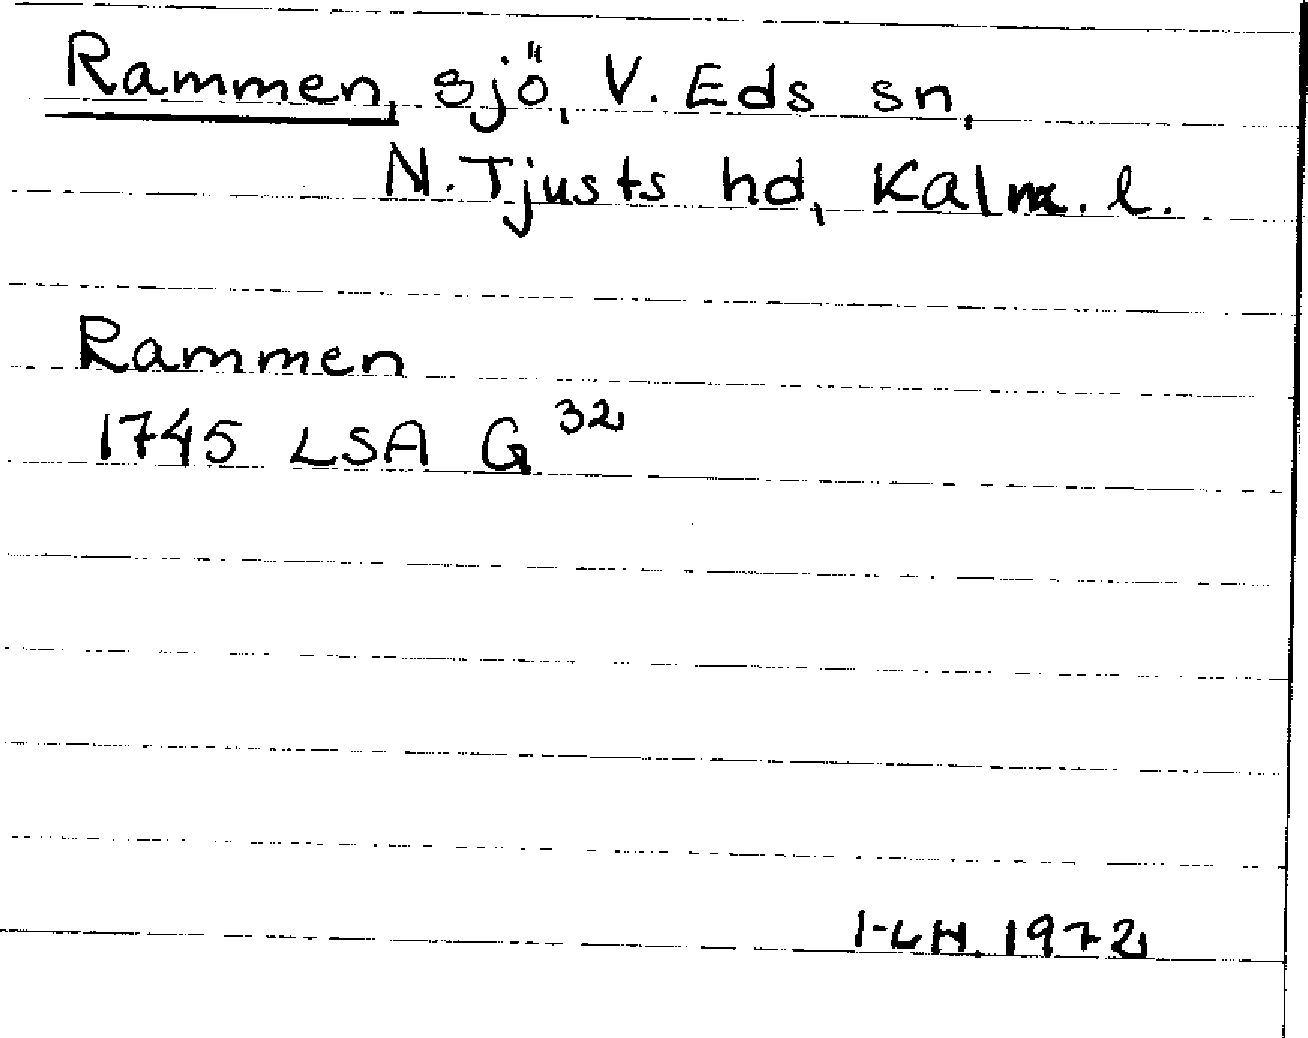 Rammen, sjö, V. Eds sn,
N. Tjusts hd, Kalm. l.
Rammen
1745 LSA G 32
I-LH. 1972